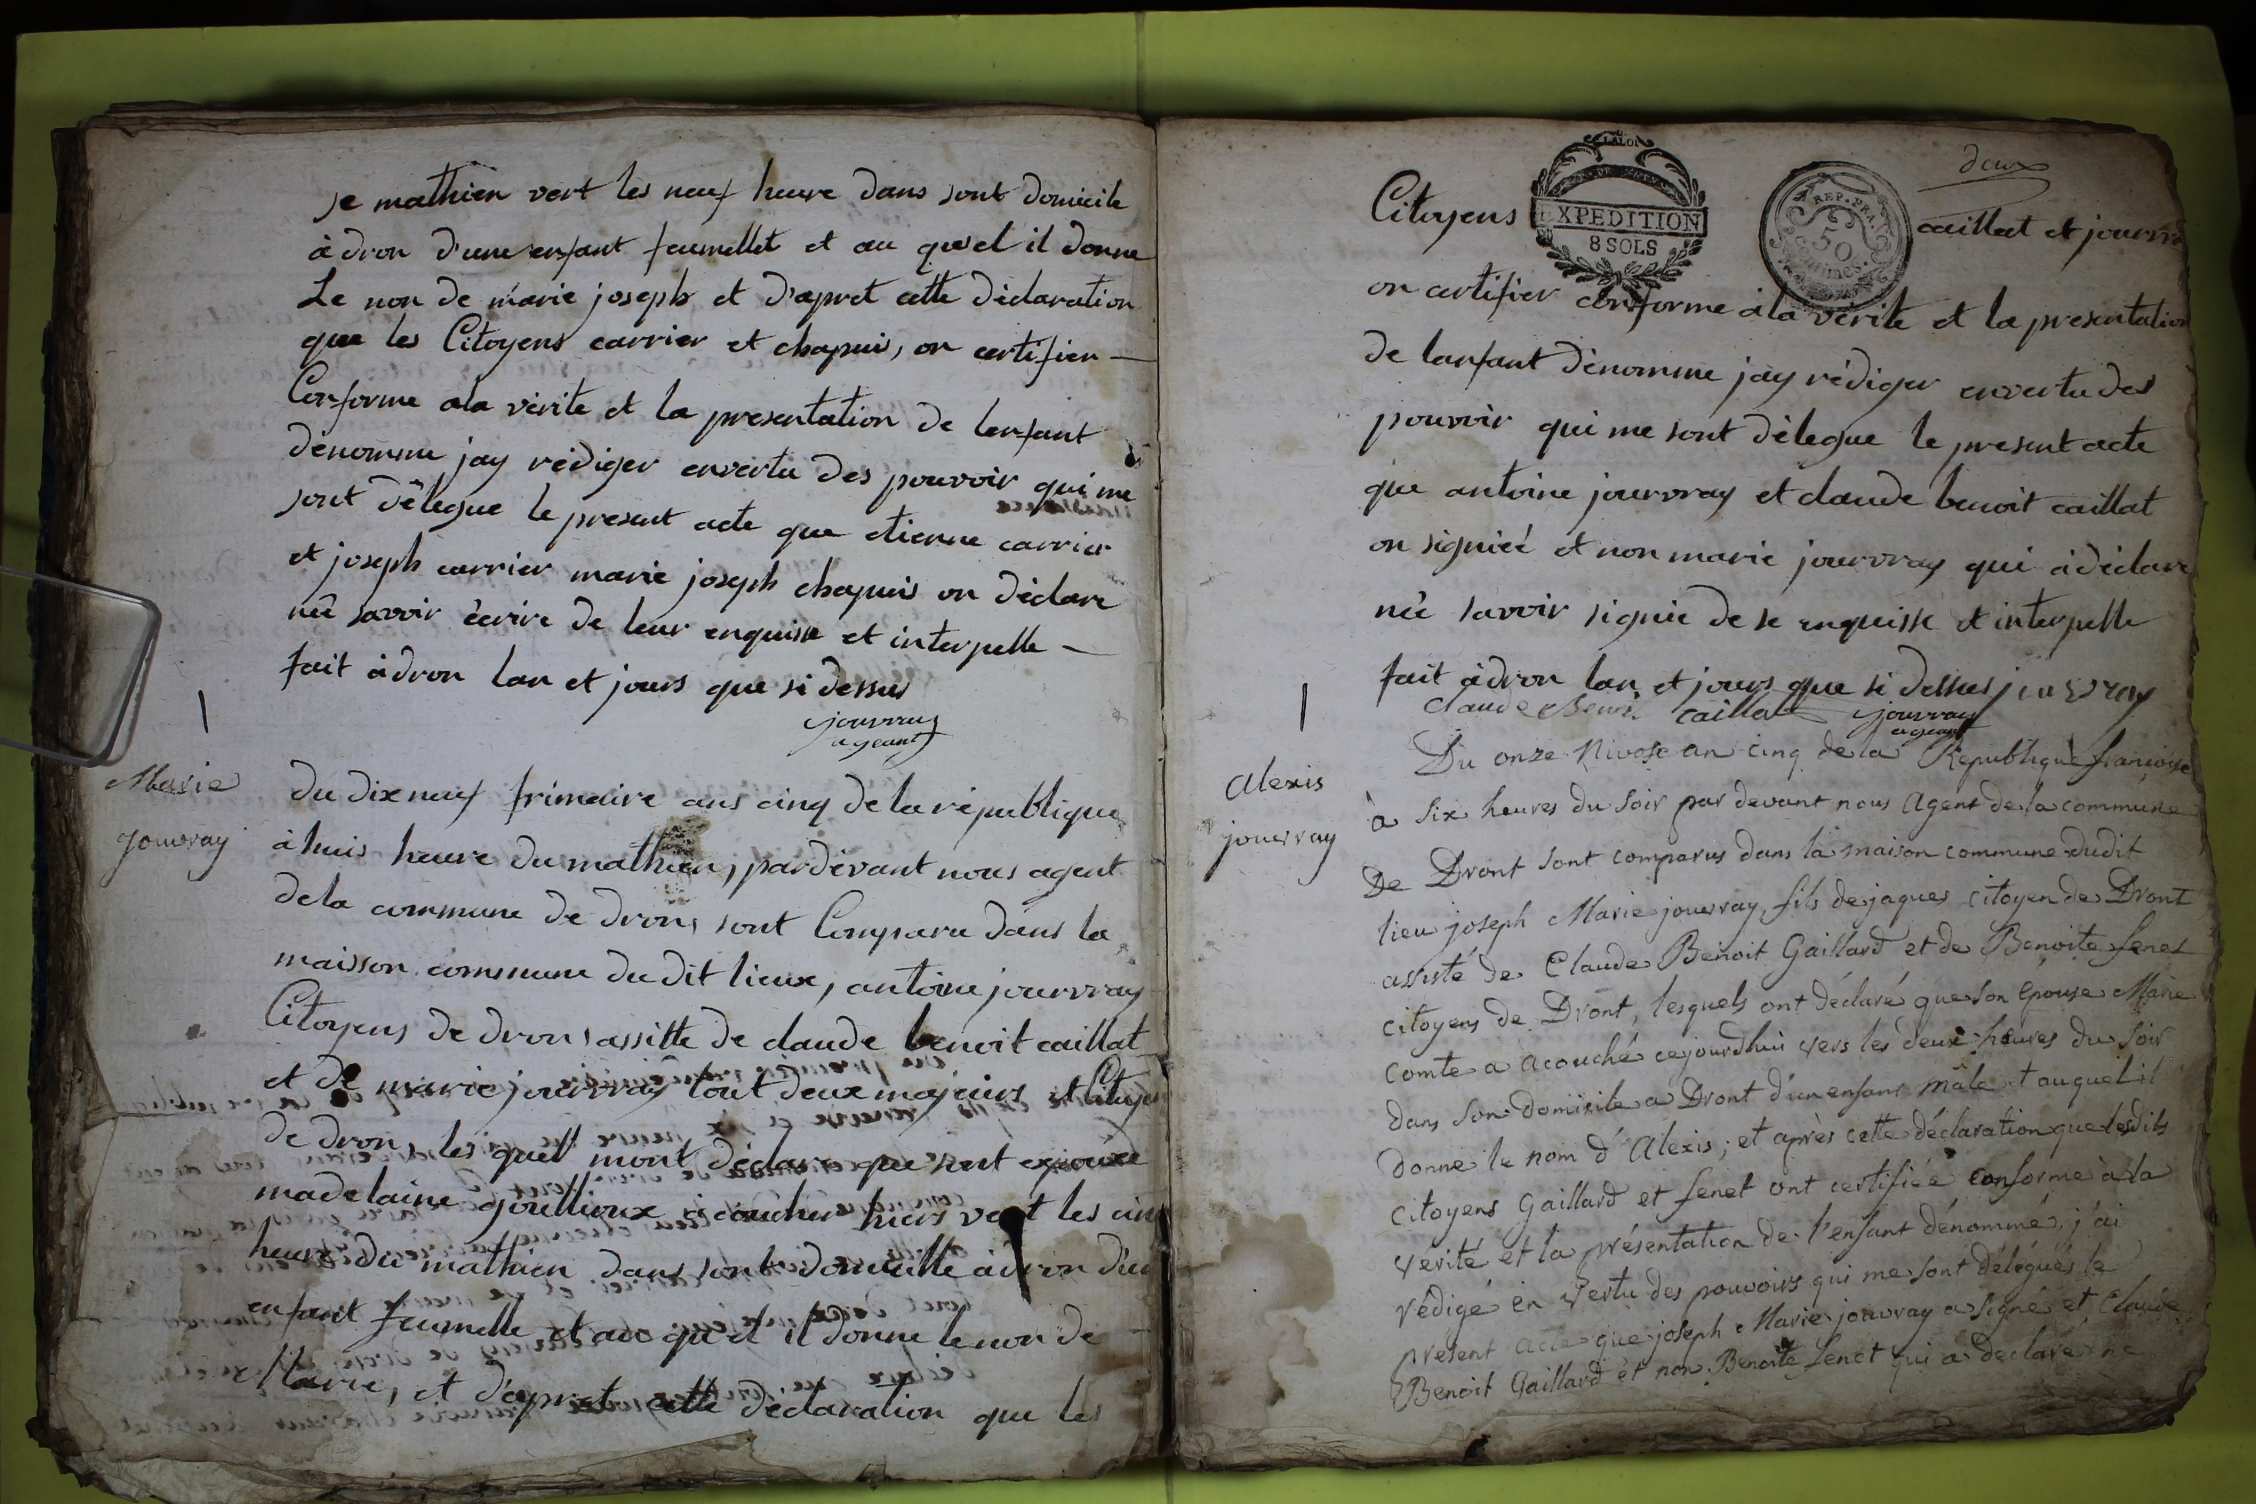 se mathien vert les neuf heure dans sont domicile
à dron d'une enfant feumellet et au quel il donne
Le non de marie joseph et d'apret cette déclaration
que les Citoyens carrier et chapuis, on certifier —
Conforme ala vérité et la presentation de lenfant
dénomme jay rédiger envertu des pouvoir qui me
sont délegue le present acte que etienne carrier
et joseph carrier marie joseph chapuis on déclare
né savoir écrire de leur enquisse et interpelle —
fait à dron lan et jours que si dessus
jouvray
ageant
Marie
jouvray
du dixneuf frimaire ans cinq de la république
à huis heure du mathien, pardevant nous agent
dela commune de dron, sont Comparu dans la
maisson commune du dit lieux, antoine jourvray
Citoyens de dron assitte de claude benoit caillat
et de marie jourvray tout deux majeurs et Citoyen
de dron, les quell mont déclare que sont epouxe
madelaine goullioux à coucher hiers vert les cin
heure du mathien dans sont domicille à dron d'un
enfant feumelle et au quel il donne le non de
Marie, et d'apret cette déclaration que les
deux
Citoyens
LA LOI
EXPEDITION
8 SOLS
REP. FRA.
50
centimes
caillat et jourvra
on certifier conforme à la vérité et la presentation
de lanfant dénomme jay rédiger envertu des
pouvoir qui me sont délegue le present acte
que antoine jourvray et claude benoit caillat
on signiéé et non marie jourvray qui à déclare
né savoir signie de se enquisse et interpelle
fait à dron lan et jours que si dessus jouvray
Claude Benoi caillat jouvray
ageant
alexis
jouvray
Du onze Nivose an cinq de la Republique francoise
à six heures du soir par devant nous agent de la commune
De Dront sont comparus dans la maison commune dudit
lieu joseph Marie jouvray, fils de jaques citoyen de Dront
assisté de Claude Benoit Gaillard et de Benoite fenet
citoyens de Dront, lesquels ont déclaré que son épouse Marie
comte a acouché cejourdhui vers les deux heures du soir
dans son domicile a Dront d'un enfant mâle et auquel il
donne le nom d'Alexis; et après cette déclaration que lesdits
citoyens Gaillard et fenet ont certifiée conforme à la
verité et la présentation de l'enfant dénommé, j'ai
rédigé en vertu des pouvoirs qui me sont délégués le
present acte que joseph Marie jouvray a signé et Claude
Benoit Gaillard et non Benoite fenet qui a declaré ne